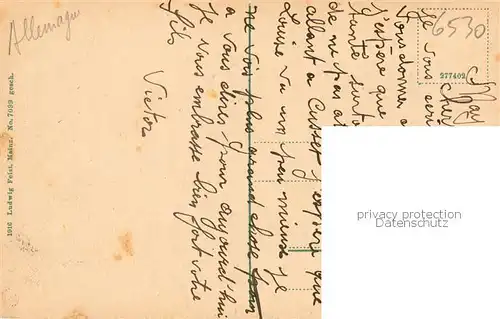 Allemagne
6530
277402
Mes
Cher
Je vous écri
Vous donner
J'espère que
tante
de ne pas
allant a Cusset j'espère que
Louise va un peu mieux je
ne vois plus grand chose
a vous dire pour aujourd'hui
Je vous embrasse bien fort votre
fils
Victor
1916 Ludwig Feist, Mainz. No. 7099 gesch.
privacy protection
veikkos.com